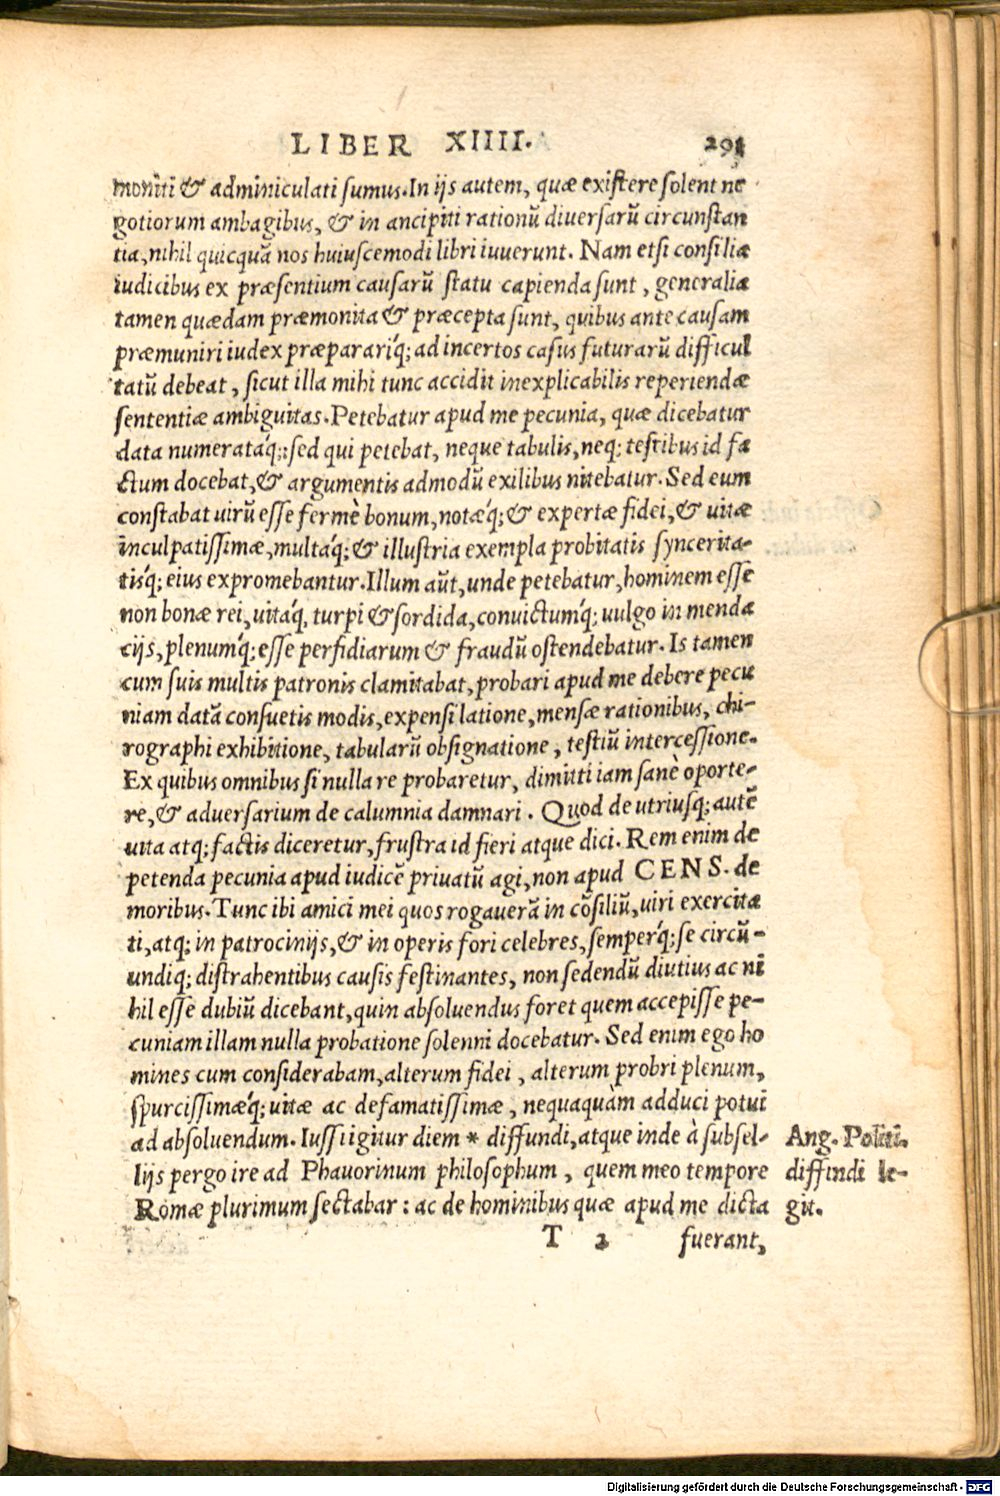 LIBER XIIII. 291
moniti & adminiculati sumus. In ijs autem, quæ existere solent ne
gotiorum ambagibus, & in ancipiti rationũ diversarũ circunstan
tia, nihil quicquã nos huiuscemodi libri iuverunt. Nam etsi consilia
iudicibus ex præsentium causarũ statu capienda sunt, generalia
tamen quædam præmonita & præcepta sunt, quibus ante causam
præmuniri iudex præparariq́; ad incertos casus futurarũ difficul
tatũ debeat, sicut illa mihi tunc accidit inexplicabilis reperiendæ
sententiæ ambiguitas. Petebatur apud me pecunia, quæ dicebatur
data numerataq́;: sed qui petebat, neque tabulis, neq; testibus id fa
ctum docebat, & argumentis admodũ exilibus nitebatur. Sed eum
constabat uirũ esse fermè bonum, notæq́; & expertæ fidei, & uitæ
inculpatissimæ, multaq́; & illustria exempla probitatis syncerita-
tisq́; eius expromebantur. Illum aũt, unde petebatur, hominem esse
non bonæ rei, uitaq́, turpi & sordida, convictumq́; uulgo in menda
cijs, plenumq́; esse perfidiarum & fraudũ ostendebatur. Is tamen
cum suis multis patronis clamitabat, probari apud me debere pecu
niam datã consuetis modis, expensi latione, mensæ rationibus, chi-
rographi exhibitione, tabularũ obsignatione, testiũ intercessione.
Ex quibus omnibus si nulla re probaretur, dimitti iam sanè oporte-
re, & adversarium de calumnia damnari. Quod de utriusq; autẽ
uita atq; factis diceretur, frustra id fieri atque dici. Rem enim de
petenda pecunia apud iudicẽ privatũ agi, non apud CENS. de
moribus. Tunc ibi amici mei quos rogaverã in cõsiliũ, uiri exercita
ti, atq; in patrocinijs, & in operis fori celebres, semperq́; se circũ-
undiq; distrahentibus causis festinantes, non sedendũ diutius ac ni
hil esse dubiũ dicebant, quin absolvendus foret quem accepisse pe-
cuniam illam nulla probatione solenni docebatur. Sed enim ego ho
mines cum considerabam, alterum fidei, alterum probri plenum,
spurcissimæq́; uitæ ac defamatissimæ, nequaquàm adduci potui
ad absoluendum. Iussi igitur diem * diffundi, atque inde à subsel-
lijs pergo ire ad Phavorinum philosophum, quem meo tempore
Romæ plurimum sectabar: ac de hominibus quæ apud me dicta
Ang. Politi.
diffindi le-
git.
T 2 fuerant,
Digitalisierung gefördert durch die Deutsche Forschungsgemeinschaft - DFG